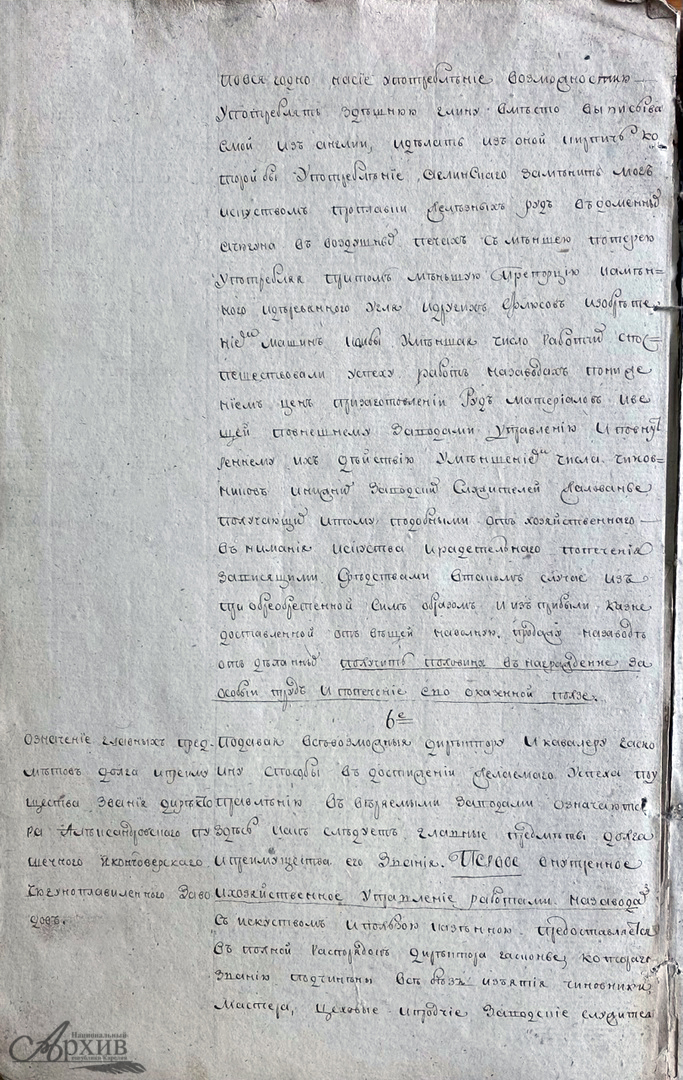 повсягодно на сіе употребленіе возможностію
употреблять здѣшнюю глину вмѣсто выписыва
емой изъ англіи, и дѣлать изъ оной кирпичь ко
торой бы употребленіе аглинскаго замѣнить могъ
искуствомъ проплавки желѣзныхъ рудъ въ доменныхъ
и чугуна въ воздушныхъ печехъ съ мѣншею потерею
употребляя притомъ мѣньшую препорцію каменн-
ного и древянного угля и другихъ флюсовъ изобрѣте
ніемъ машинъ кои бы уменшая число работъ спос=
пешествовали успеху работъ на заводахъ пониже
ніемъ ценъ при заготовленіи рудъ матеріаловъ и ве
щей по внешнему заводами управленію и по внут
реннему ихъ дѣйствію уменшеніемъ числа чинов=
никовъ и нижнихъ заводскихъ служителей жалованье
получающихъ и тому подобными отъ хозяйственного
вниманія искуства и радетельного попеченія
зависящими средствами в такомъ случае изъ
приобретенной симъ образомъ и изъ прибыли казне
доставленной отъ вѣщей на вольную продажу на заводѣ
отдѣланныхъ получить половину въ награжденіе за
особый трудъ и попеченіе его о казенной ползе.
6е
Означеніе главныхъ пред
мѣтовъ долга и преиму
щества званія директо
ра Александровского пу
шечного и кончезерскаго
чюгуноплавиленного заво
довъ.
Подавая всѣ возможныя дирѣктору и кавалеру гаско
ину способы въ достиженіи желаемаго успеха по у
правлѣнію ввѣряемыми заводами означаются
здѣсь какъ слѣдуетъ главныя предметы долга
и преимущества его званія. Первое внутренное
и хозяйственное управленіе работами на заводахъ
съ искуствомъ и пользою казенною предоставляется
въ полной распорядокъ дирѣктора гаскоине, котораго
званію подчинены всѣ безъ изъятія чиновники
мастера, цеховые и протчіе заводскіе служите
Национальный
Архив
республики Карелия